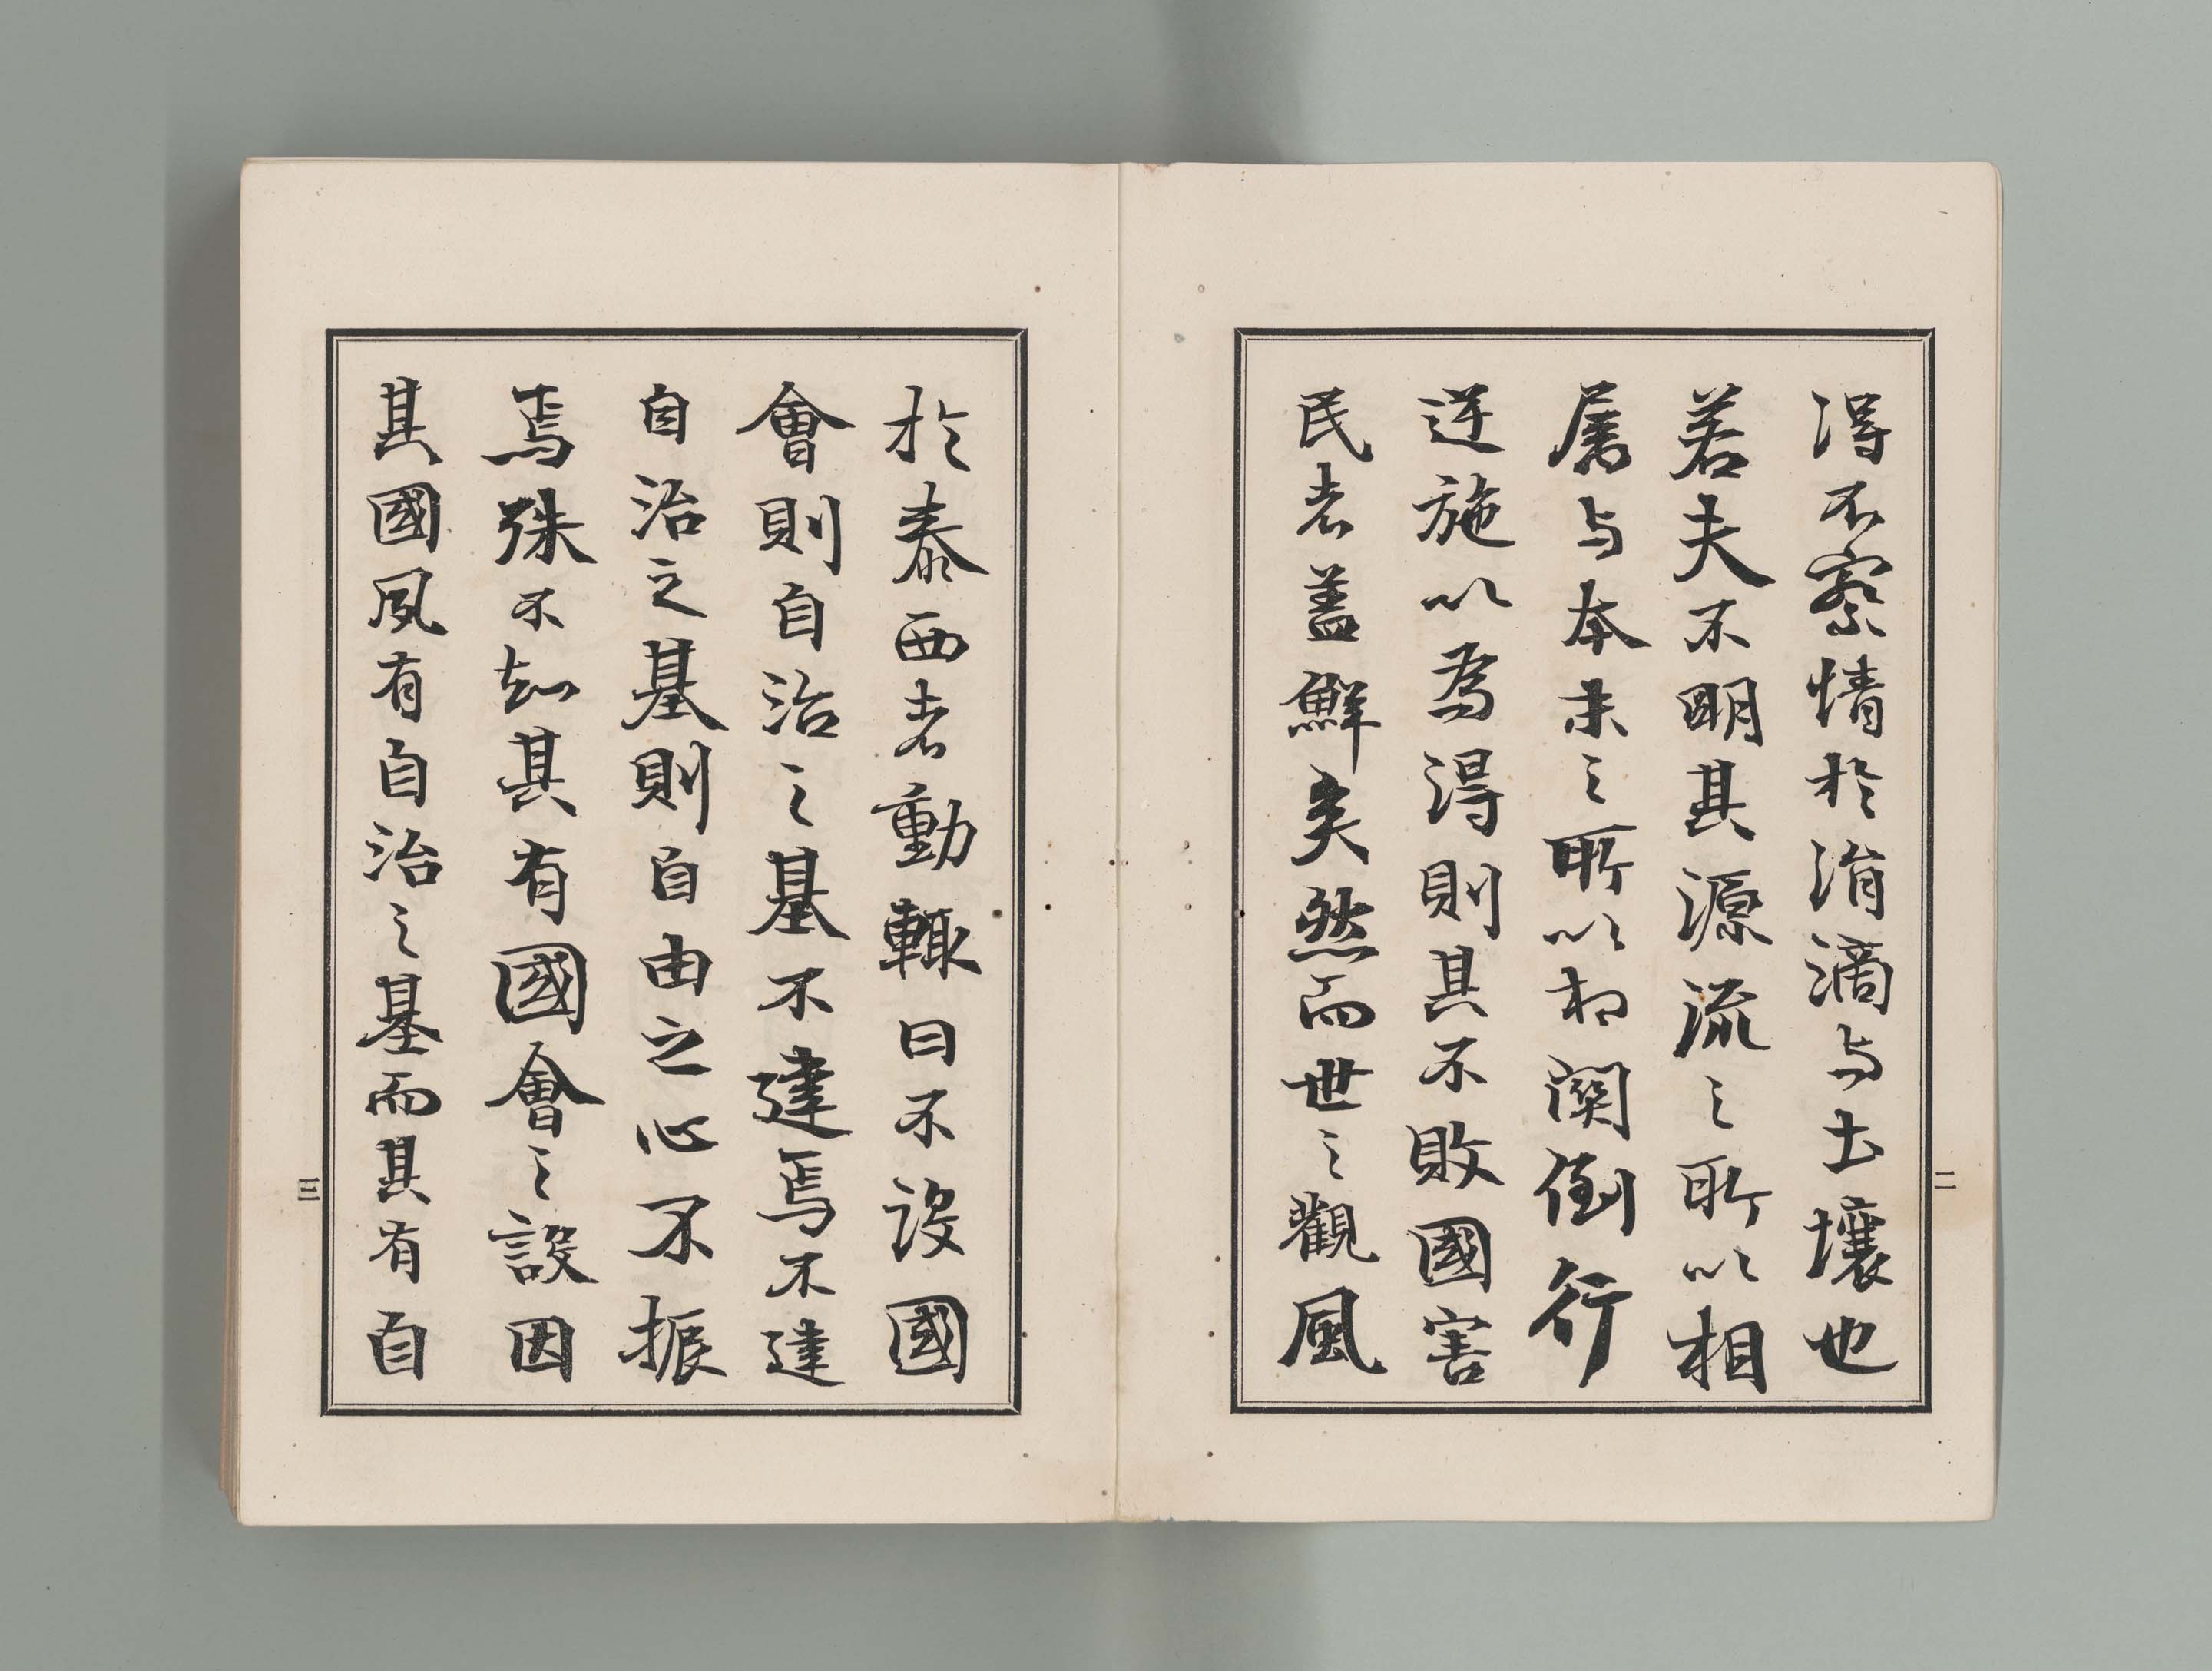 得不察情於涓滴与土壤也
若夫不明其源流之所以相
属与本末之所以相関倒行
逆施以為得則其不敗國害
民者蓋鮮矣然而世之觀風
二
於泰西者動輙曰不設國
會則自治之基不建焉不建
自治之基則自由之心不振
焉殊不知其有國會之設因
其國夙有自治之基而其有自
三